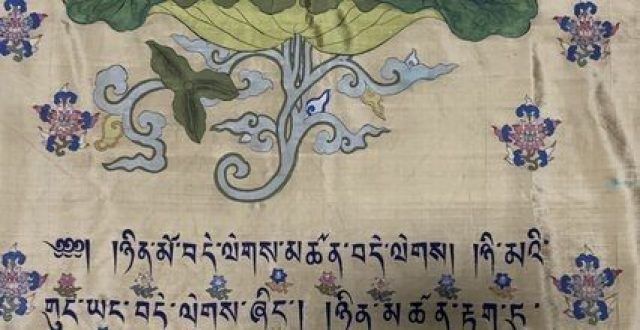 ༄༅༅། །ཉིན་མོ་བདེ་ལེགས་མཚན་བདེ་ལེགས། །ཉི་མའི་
གུང་ཡང་བདེ་ལེགས་ཤིང་། །ཉིན་མཚན་རྟག་ཏུ་